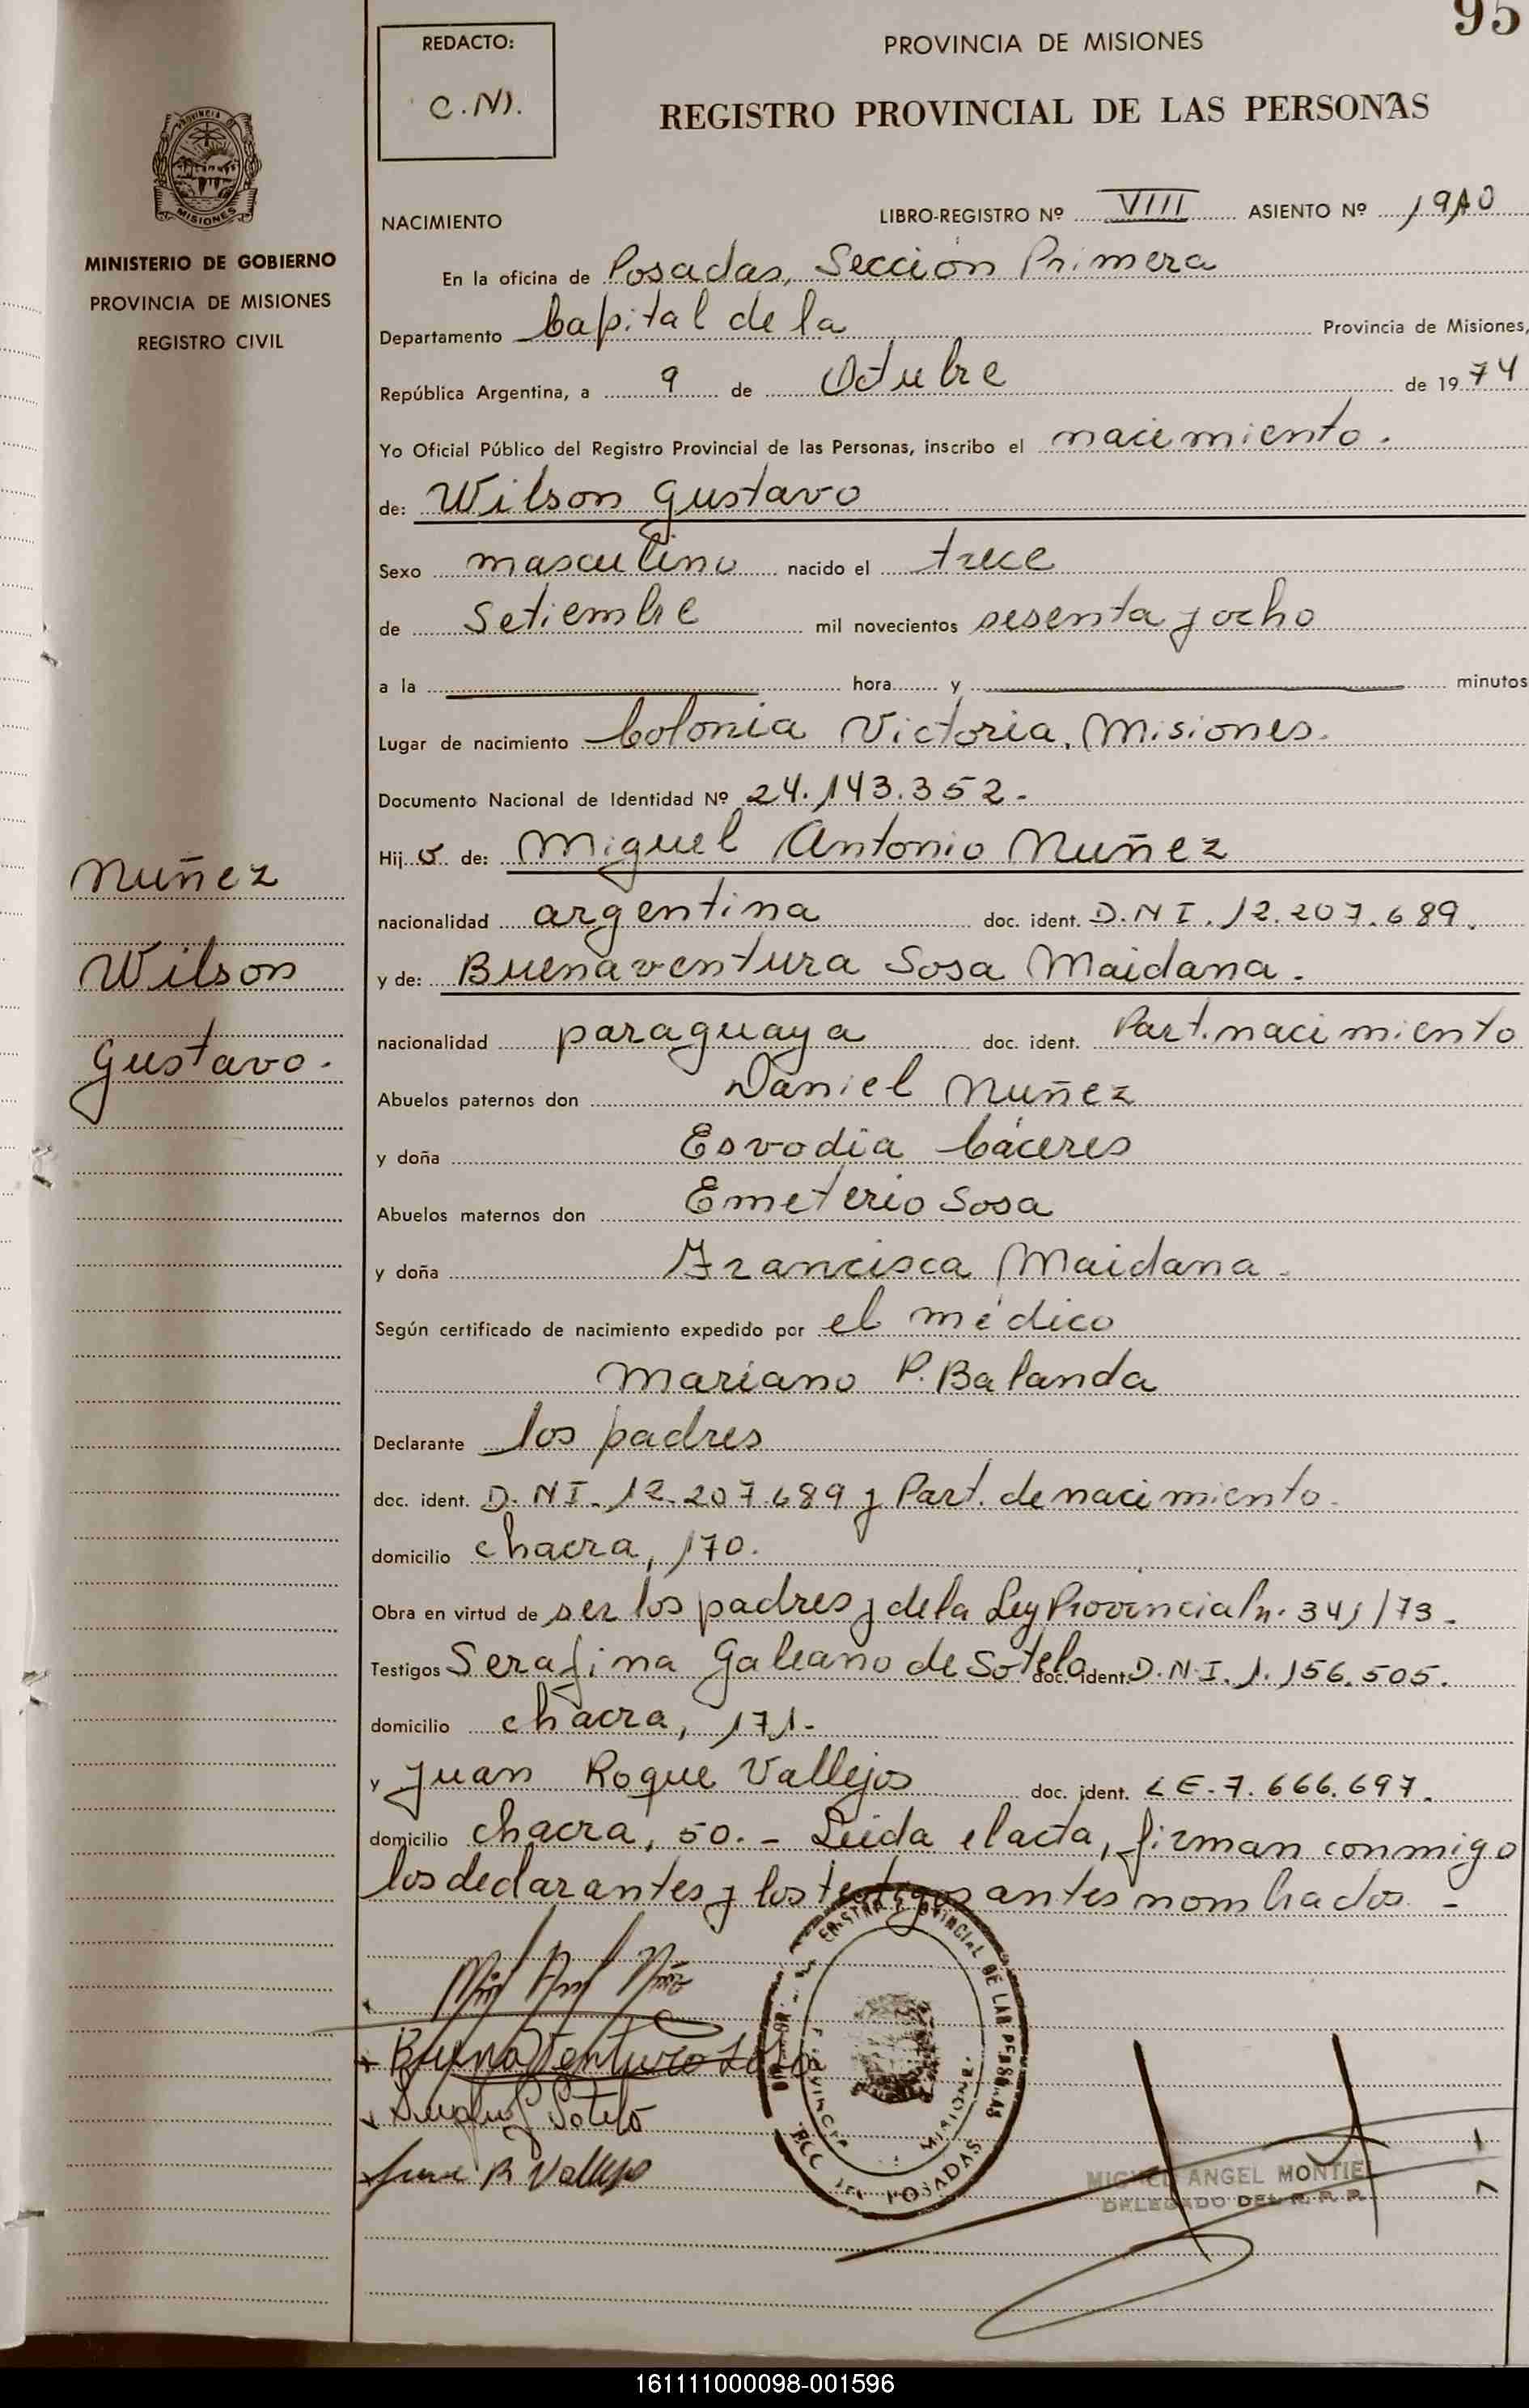 95
REDACTO:
C.N.
PROVINCIA DE MISIONES
REGISTRO PROVINCIAL DE LAS PERSONAS
PROVINCIA DE
MISIONES
MINISTERIO DE GOBIERNO
PROVINCIA DE MISIONES
REGISTRO CIVIL
NACIMIENTO LIBRO-REGISTRO Nº VIII ASIENTO Nº 1910
En la oficina de Posadas, Sección Primera
Departamento Capital de la Provincia de Misiones,
República Argentina, a 9 de Octubre de 1974
Yo Oficial Público del Registro Provincial de las Personas, inscribo el nacimiento.
de: Wilson Gustavo
Sexo masculino nacido el trece
de Setiembre mil novecientos sesenta y ocho
a la hora y minutos
Lugar de nacimiento Colonia Victoria, Misiones.
Documento Nacional de Identidad Nº 24.143.352.-
Hijo de: Miguel Antonio Nuñez
nacionalidad argentina doc. ident. D.N I. 12.207.689.
y de: Buenaventura Sosa Maidana.
nacionalidad paraguaya doc. ident. Part. nacimiento
Abuelos paternos don Daniel Nuñez
y doña Esvodia Cáceres
Abuelos maternos don Emeterio Sosa
y doña Francisca Maidana.
Según certificado de nacimiento expedido por el médico
Mariano P. Balanda
Declarante los padres
doc. ident. D. N I. 12.207.689 y Part. de nacimiento.
domicilio chacra, 170.
Obra en virtud de ser los padres y de la Ley Provincial n. 341/73-
Testigos Serafina Galeano de Sotelo doc. ident. D.N.I. 1.156.505.
domicilio chacra, 171.-
y Juan Roque Vallejos doc. ident. L E-7.666.697.
domicilio chacra, 50.- Leida el acta, firman conmigo
los declarantes y los testigos antes nombrados.-
Nuñez
Wilson
Gustavo.
Buenaventura Sosa
Sotelo
Juan R Vallejos
REGISTRO PROVINCIAL DE LAS PERSONAS
PROVINCIA MISIONES
POSADAS
MIGUEL ANGEL MONTIEL
DELEGADO DEL R. P. P.
161111000098-001596